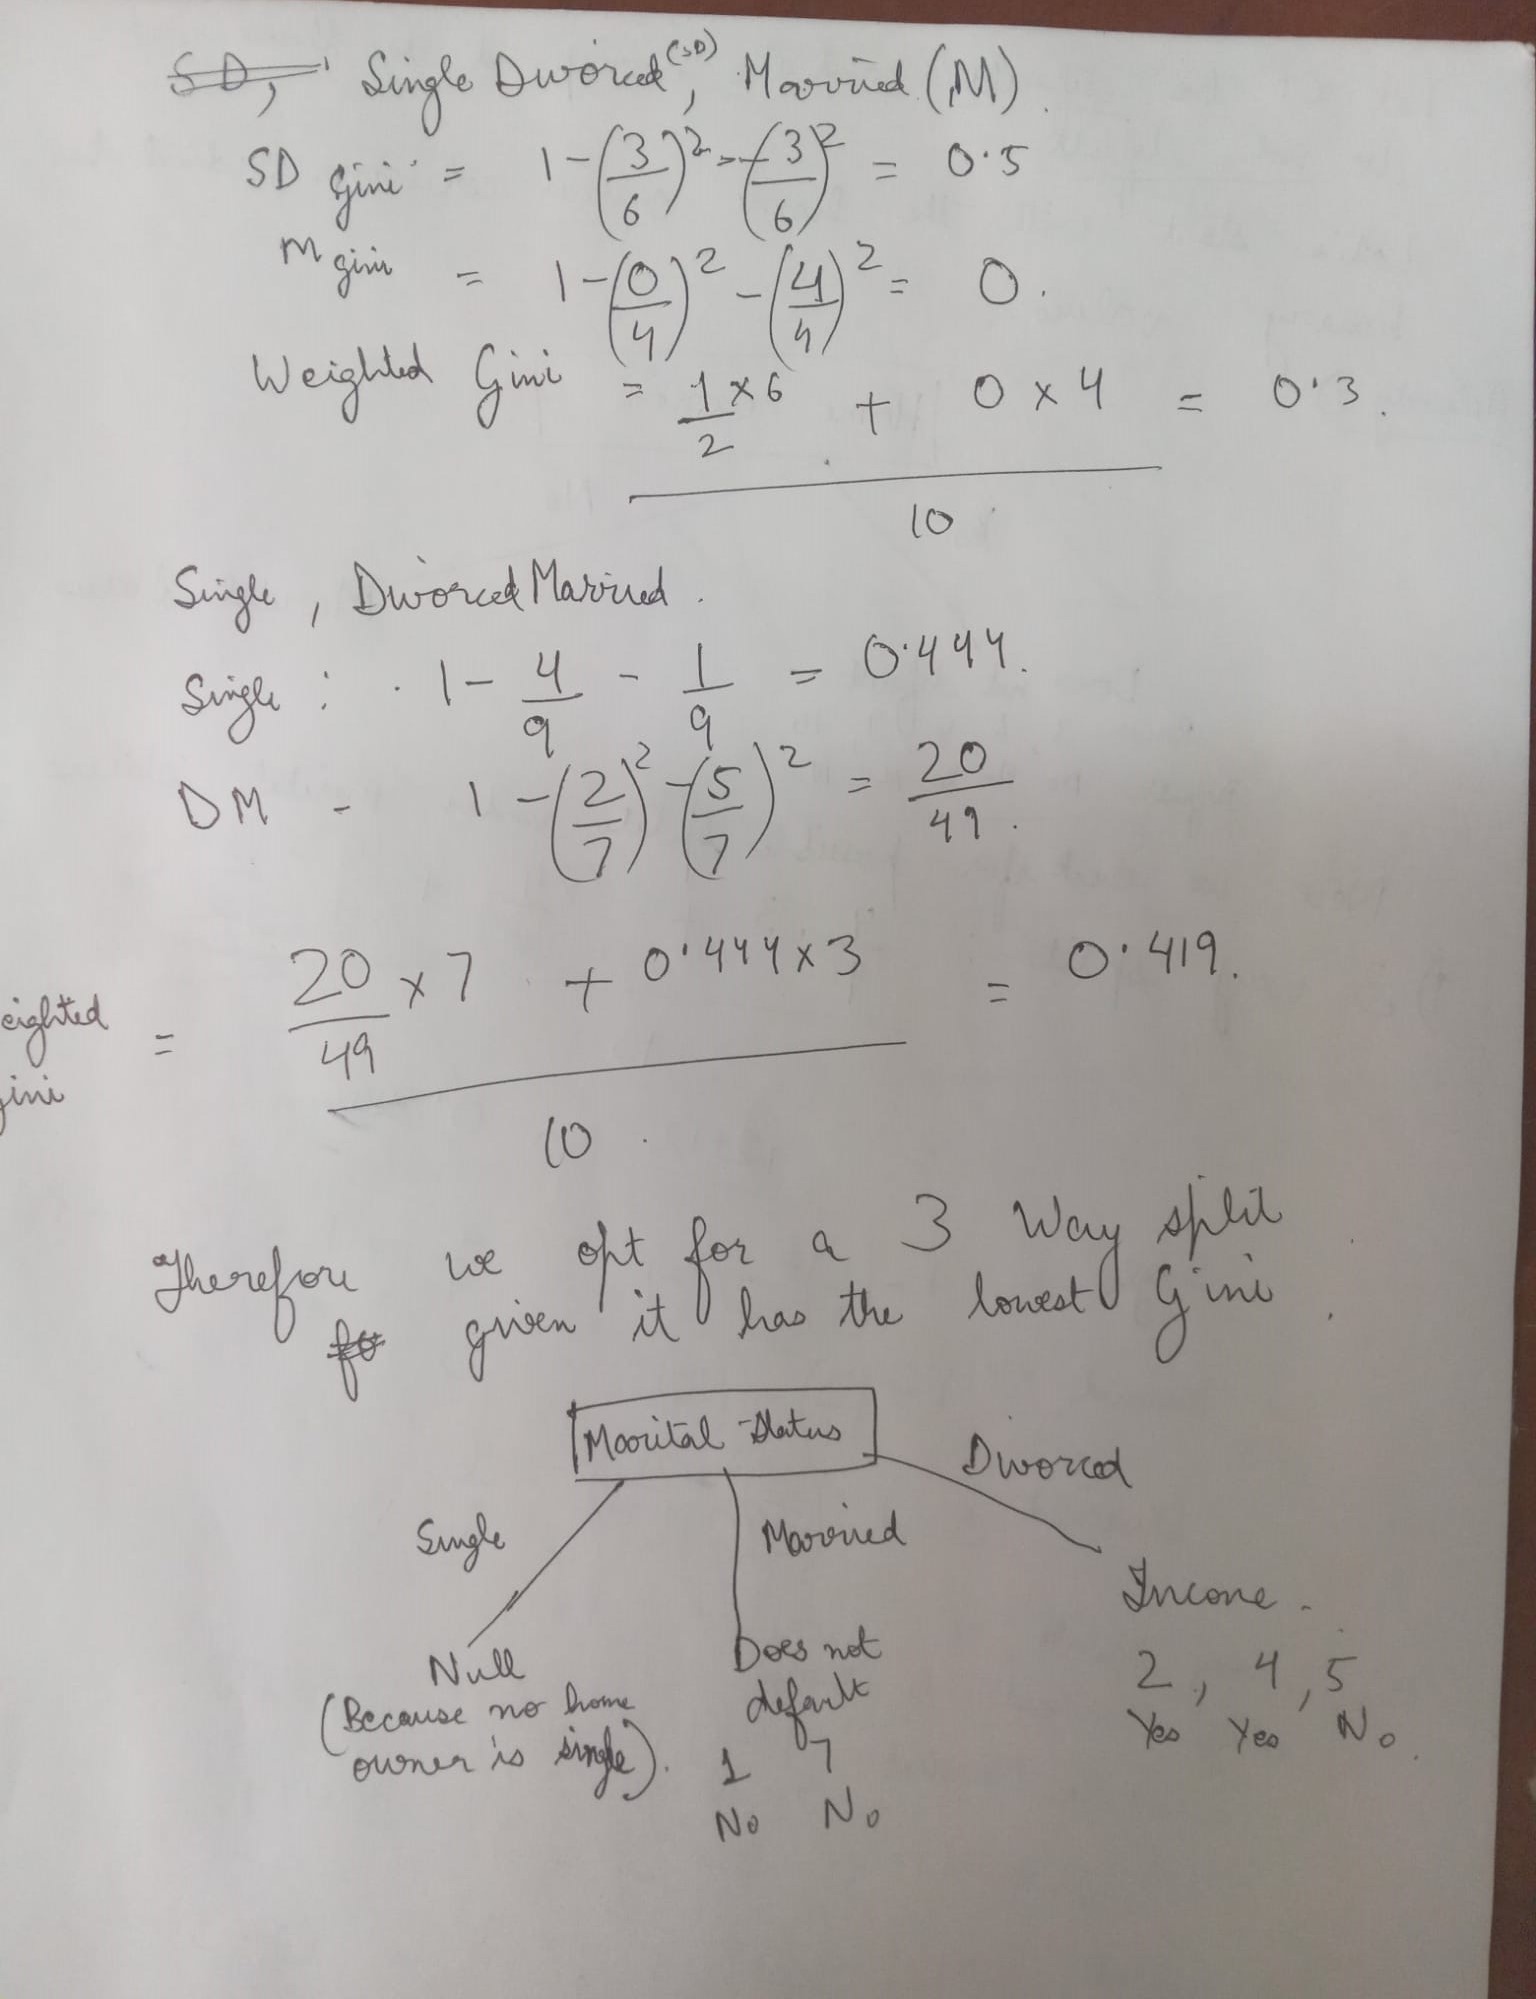 SD, Single Divorced (SD), Married (M).
SD Gini = 1 - (3/6)² - (3/6)² = 0.5
M gini = 1 - (0/4)² - (4/4)² = 0.
Weighted Gini = (1/2 × 6 + 0 × 4) / 10 = 0.3.
Single, Divorced Married.
Single : 1 - 4/9 - 1/9 = 0.444.
DM - 1 - (2/7)² - (5/7)² = 20/49.
eighted gini = (20/49 × 7 + 0.444 × 3) / 10 = 0.419.
Therefore we opt for a 3 Way split
given it has the lowest Gini.
Marital Status
Divorced
Single
Married
Income.
Null
(Because no home
owner is single).
Does not
default
1 7
No No
2, 4, 5
Yes Yes No.